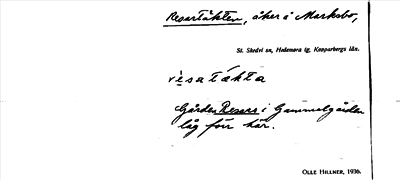 Resartäkten, åker å Marksbo,
St. Skedvi sn, Hedemora tg, Kopparbergs län.
resatäkta
Gården Resars i Gammelgården
låg förr här.
OLLE HILLNER, 1930.